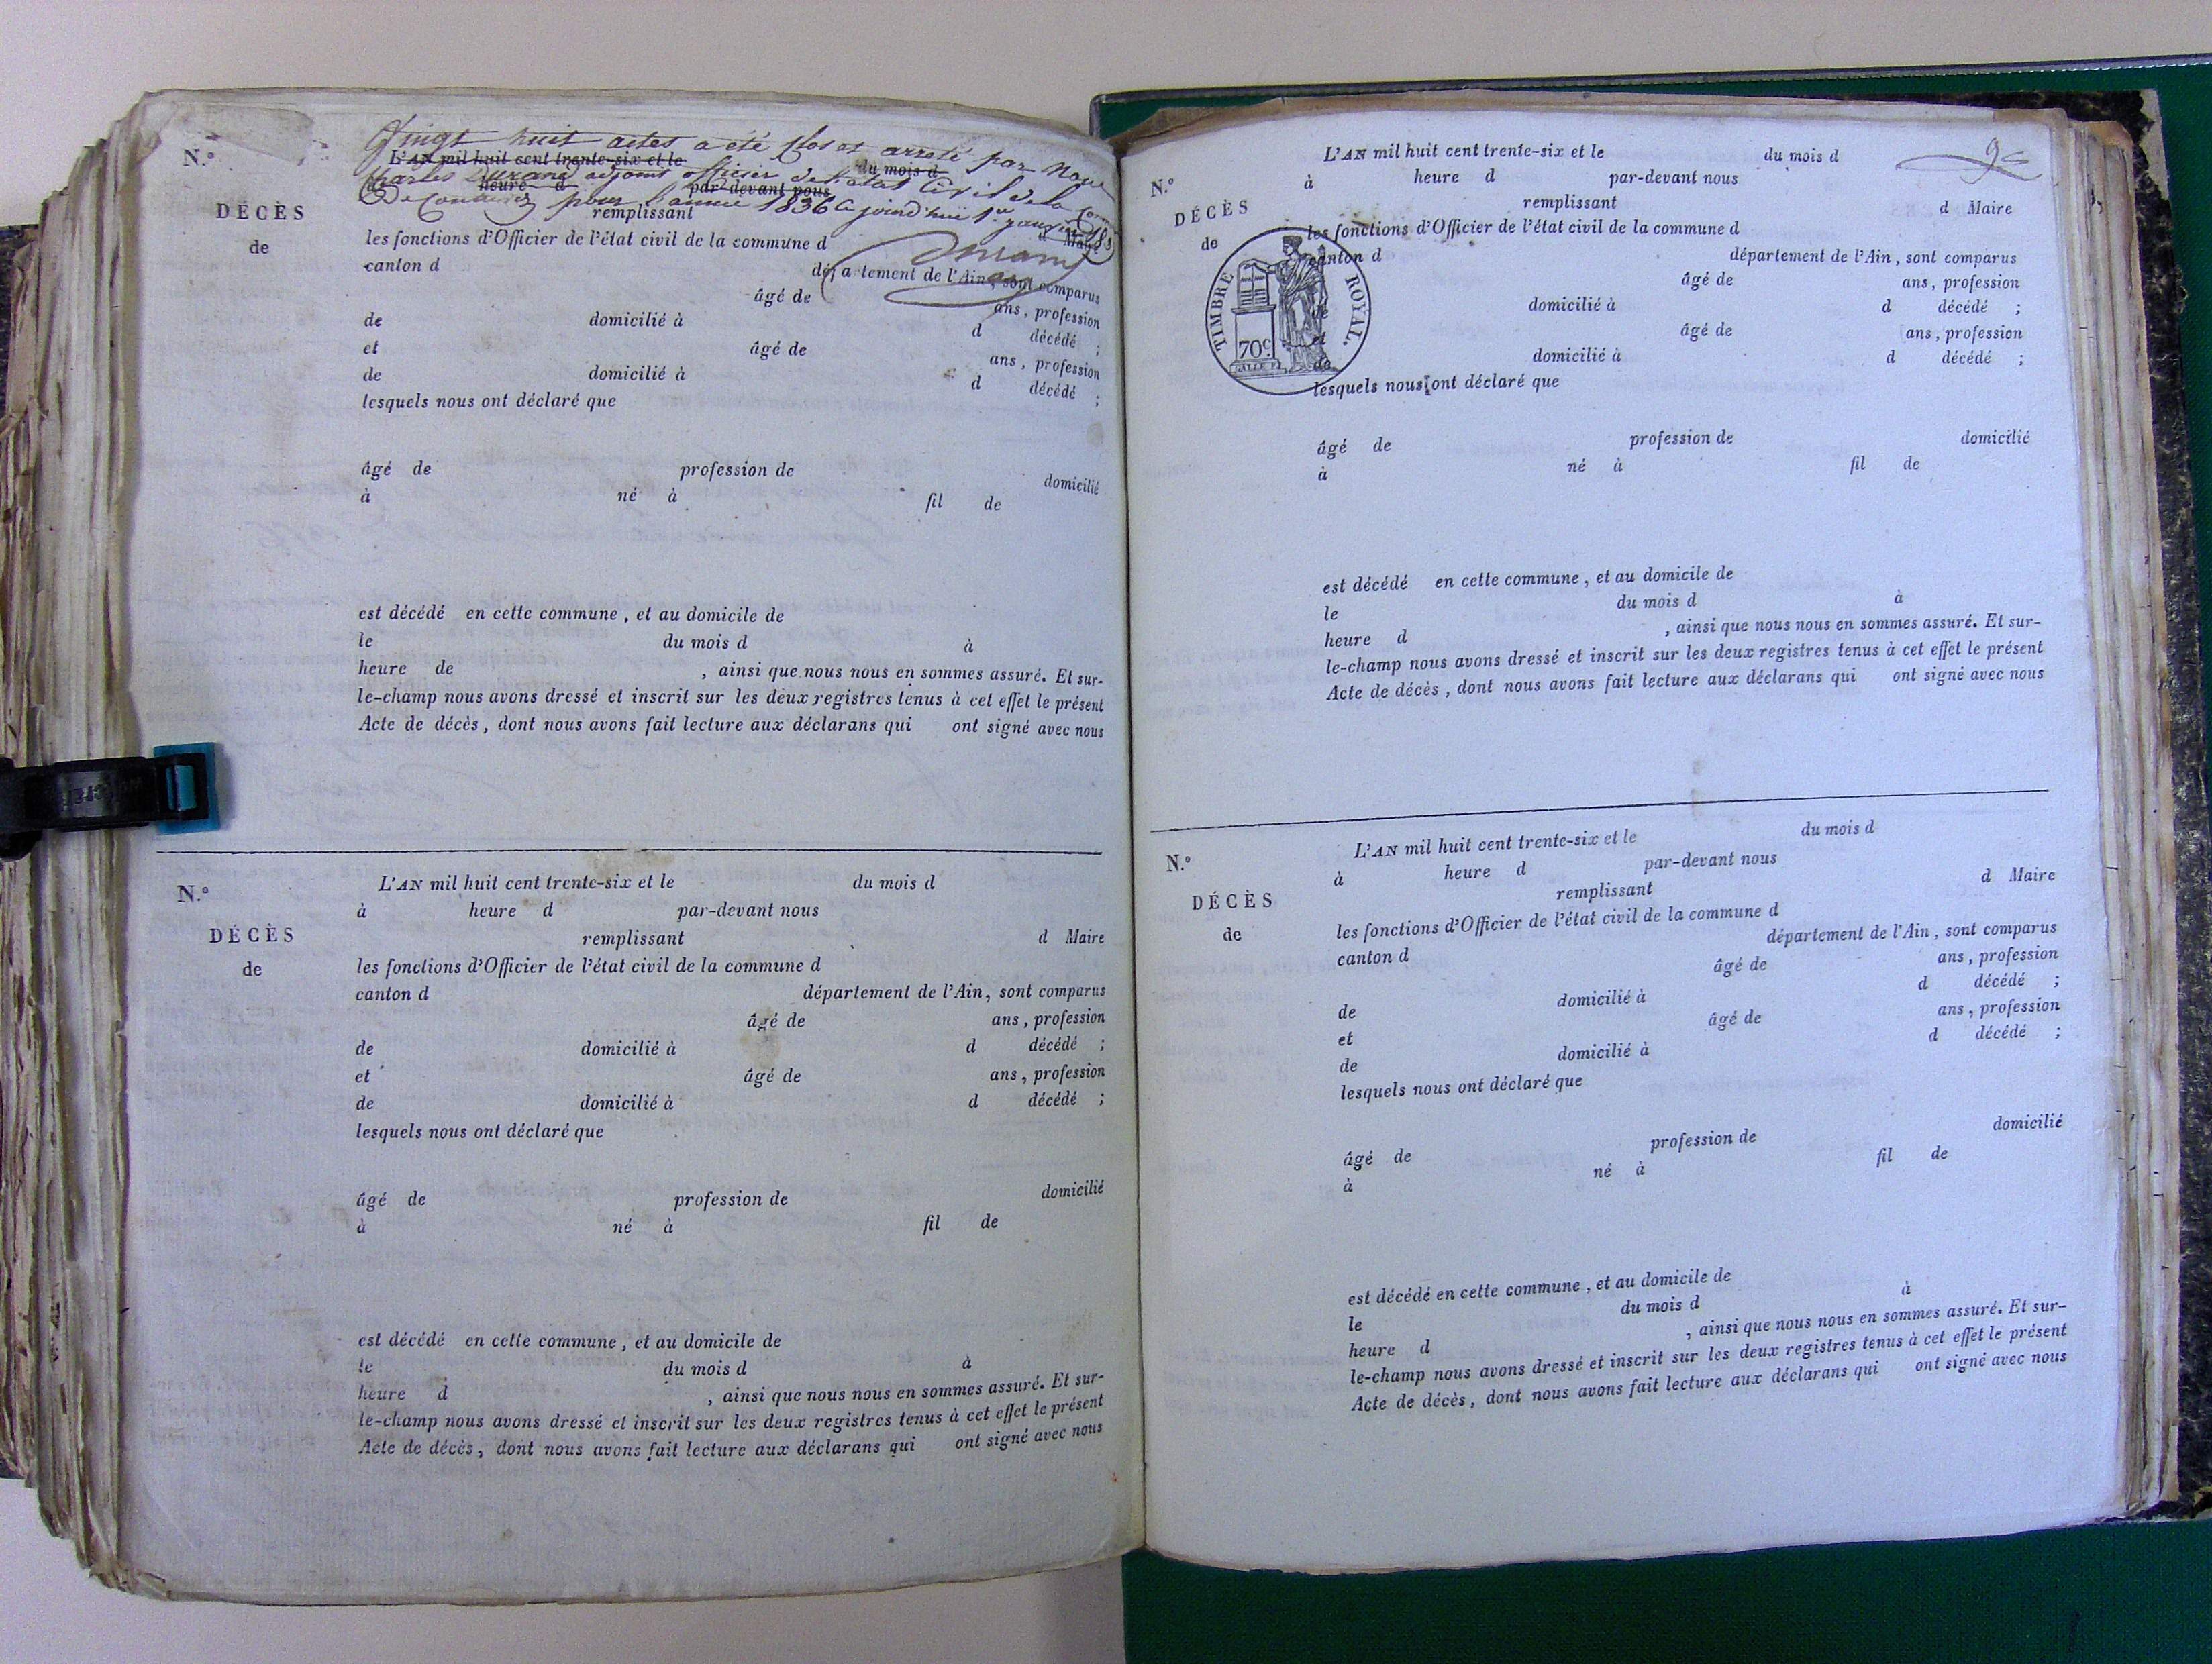 Vingt huit actes a été Clos et arreté par Nous
N.º
L'AN mil huit cent trente-six et le du mois d
Charles Durand adjoint officier de l'état Civil de la
heure d par-devant nous
De pour l'année 1836 Ce jourd'hui 1.er janvier
DÉCÈS
remplissant
d Maire
de
les fonctions d'Officier de l'état civil de la commune d
Durand
canton d département de l'Ain, sont comparus
âgé de ans, profession
de domicilié à d décédé ;
et âgé de ans, profession
de domicilié à d décédé ;
lesquels nous ont déclaré que
âgé de profession de domicilié
à né à fil de
est décédé en cette commune, et au domicile de
le du mois d à
heure de , ainsi que nous nous en sommes assuré. Et sur-
le-champ nous avons dressé et inscrit sur les deux registres tenus à cet effet le présent
Acte de décès, dont nous avons fait lecture aux déclarans qui ont signé avec nous
N.º
L'AN mil huit cent trente-six et le du mois d
à heure d par-devant nous
DÉCÈS
remplissant d Maire
de
les fonctions d'Officier de l'état civil de la commune d
canton d département de l'Ain, sont comparus
âgé de ans, profession
de domicilié à d décédé ;
et âgé de ans, profession
de domicilié à d décédé ;
lesquels nous ont déclaré que
âgé de profession de domicilié
à né à fil de
est décédé en cette commune, et au domicile de
le du mois d à
heure d , ainsi que nous nous en sommes assuré. Et sur-
le-champ nous avons dressé et inscrit sur les deux registres tenus à cet effet le présent
Acte de décès, dont nous avons fait lecture aux déclarans qui ont signé avec nous
N.º
L'AN mil huit cent trente-six et le du mois d
à heure d par-devant nous
DÉCÈS
remplissant d Maire
de
les fonctions d'Officier de l'état civil de la commune d
canton d département de l'Ain, sont comparus
TIMBRE ROYAL.
70.c
âgé de ans, profession
de domicilié à d décédé ;
et âgé de ans, profession
de domicilié à d décédé ;
lesquels nous ont déclaré que
âgé de profession de domicilié
à né à fil de
est décédé en cette commune, et au domicile de
le du mois d à
heure d , ainsi que nous nous en sommes assuré. Et sur-
le-champ nous avons dressé et inscrit sur les deux registres tenus à cet effet le présent
Acte de décès, dont nous avons fait lecture aux déclarans qui ont signé avec nous
N.º
L'AN mil huit cent trente-six et le du mois d
à heure d par-devant nous
DÉCÈS
remplissant d Maire
de
les fonctions d'Officier de l'état civil de la commune d
canton d département de l'Ain, sont comparus
âgé de ans, profession
de domicilié à d décédé ;
et âgé de ans, profession
de domicilié à d décédé ;
lesquels nous ont déclaré que
âgé de profession de domicilié
à né à fil de
est décédé en cette commune, et au domicile de
le du mois d à
heure d , ainsi que nous nous en sommes assuré. Et sur-
le-champ nous avons dressé et inscrit sur les deux registres tenus à cet effet le présent
Acte de décès, dont nous avons fait lecture aux déclarans qui ont signé avec nous